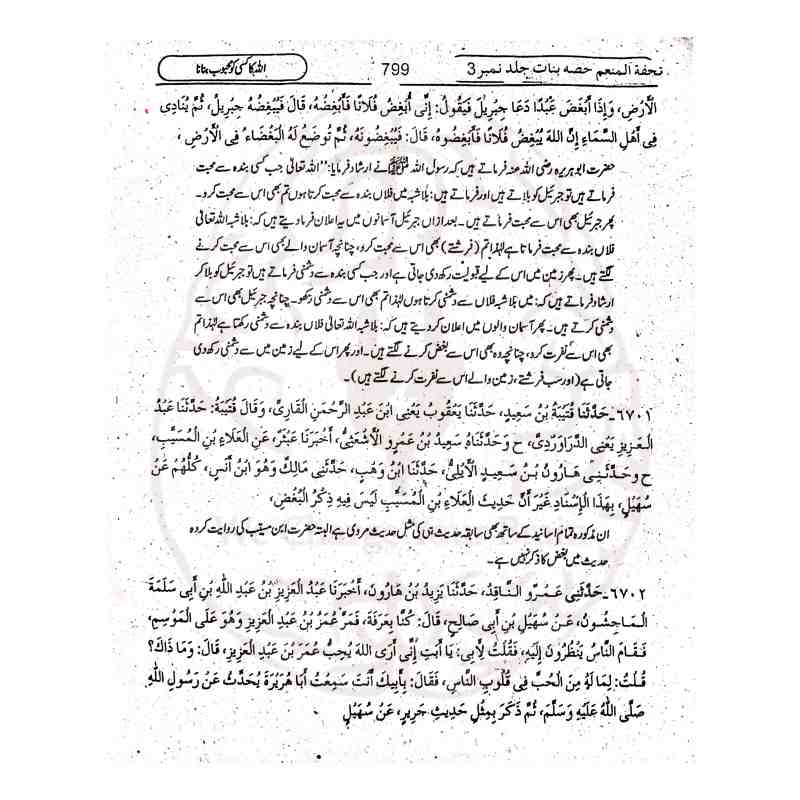 تحفۃ المنعم حصہ بنات جلد نمبر 3
799
اللہ کا کسی کو محبوب بنانا
الْأَرْضِ، وَإِذَا أَبْغَضَ عَبْدًا دَعَا جِبْرِيلَ فَيَقُولُ: إِنِّي أُبْغِضُ فُلَانًا فَأَبْغِضْهُ، قَالَ فَيُبْغِضُهُ جِبْرِيلُ، ثُمَّ يُنَادِي
فِي أَهْلِ السَّمَاءِ إِنَّ اللهَ يُبْغِضُ فُلَانًا فَأَبْغِضُوهُ، قَالَ: فَيُبْغِضُونَهُ، ثُمَّ تُوضَعُ لَهُ الْبَغْضَاءُ فِي الْأَرْضِ،
حضرت ابوہریرہ رضی اللہ عنہ فرماتے ہیں کہ رسول اللہ ﷺ نے ارشاد فرمایا: ’’اللہ تعالیٰ جب کسی بندہ سے محبت
فرماتے ہیں تو جبرئیل کو بلاتے ہیں اور فرماتے ہیں: بلاشبہ میں فلاں بندہ سے محبت کرتا ہوں تم بھی اس سے محبت کرو۔
پھر جبرئیل بھی اس سے محبت فرماتے ہیں۔ بعد ازاں جبرئیل آسمانوں میں یہ اعلان فرما دیتے ہیں کہ: بلاشبہ اللہ تعالیٰ
فلاں بندہ سے محبت فرماتا ہے لہٰذا تم (فرشتے) بھی اس سے محبت کرو، چنانچہ آسمان والے بھی اس سے محبت کرنے
لگتے ہیں۔ پھر زمین میں اس کے لیے قبولیت رکھ دی جاتی ہے اور جب کسی بندہ سے دشمنی فرماتے ہیں تو جبرئیل کو بلا کر
ارشاد فرماتے ہیں کہ: میں بلاشبہ فلاں سے دشمنی کرتا ہوں لہٰذا تم بھی اس سے دشمنی رکھو۔ چنانچہ جبرئیل بھی اس سے
دشمنی کرتے ہیں۔ پھر آسمان والوں میں اعلان کر دیتے ہیں کہ: بلاشبہ اللہ تعالیٰ فلاں بندہ سے دشمنی رکھتا ہے لہٰذا تم
بھی اس سے نفرت کرو، چنانچہ وہ بھی اس سے بغض کرنے لگتے ہیں۔ اور پھر اس کے لیے زمین میں سے دشمنی رکھ دی
جاتی ہے (اور سب فرشتے، زمین والے اس سے نفرت کرنے لگتے ہیں)۔
٦٧٠١۔ حَدَّثَنَا قُتَيْبَةُ بْنُ سَعِيدٍ، حَدَّثَنَا يَعْقُوبُ يَعْنِي ابْنَ عَبْدِ الرَّحْمَنِ الْقَارِيَّ، وَقَالَ قُتَيْبَةُ: حَدَّثَنَا عَبْدُ
الْعَزِيزِ يَعْنِي الدَّرَاوَرْدِيَّ، ح وَحَدَّثَنَاهُ سَعِيدُ بْنُ عَمْرٍو الْأَشْعَثِيُّ، أَخْبَرَنَا عَبْثَرٌ، عَنِ الْعَلَاءِ بْنِ الْمُسَيَّبِ،
ح وَحَدَّثَنِي هَارُونُ بْنُ سَعِيدٍ الْأَيْلِيُّ، حَدَّثَنَا ابْنُ وَهْبٍ، حَدَّثَنِي مَالِكٌ وَهُوَ ابْنُ أَنَسٍ، كُلُّهُمْ عَنْ
سُهَيْلٍ، بِهَذَا الْإِسْنَادِ غَيْرَ أَنَّ حَدِيثَ الْعَلَاءِ بْنِ الْمُسَيَّبِ لَيْسَ فِيهِ ذِكْرُ الْبُغْضِ،
ان مذکورہ تمام اسانید کے ساتھ بھی سابقہ حدیث ہی کی مثل حدیث مروی ہے البتہ حضرت ابن مسیب کی روایت کردہ
حدیث میں بغض کا ذکر نہیں ہے۔
٦٧٠٢۔ حَدَّثَنِي عَمْرٌو النَّاقِدُ، حَدَّثَنَا يَزِيدُ بْنُ هَارُونَ، أَخْبَرَنَا عَبْدُ الْعَزِيزِ بْنُ عَبْدِ اللَّهِ بْنِ أَبِي سَلَمَةَ
الْمَاجِشُونُ، عَنْ سُهَيْلِ بْنِ أَبِي صَالِحٍ، قَالَ: كُنَّا بِعَرَفَةَ، فَمَرَّ عُمَرُ بْنُ عَبْدِ الْعَزِيزِ وَهُوَ عَلَى الْمَوْسِمِ،
فَقَامَ النَّاسُ يَنْظُرُونَ إِلَيْهِ، فَقُلْتُ لِأَبِي: يَا أَبَتِ إِنِّي أَرَى اللهَ يُحِبُّ عُمَرَ بْنَ عَبْدِ الْعَزِيزِ، قَالَ: وَمَا ذَاكَ؟
قُلْتُ: لِمَا لَهُ مِنَ الْحُبِّ فِي قُلُوبِ النَّاسِ، فَقَالَ: بِأَبِيكَ أَنْتَ سَمِعْتُ أَبَا هُرَيْرَةَ يُحَدِّثُ عَنْ رَسُولِ اللَّهِ
صَلَّى اللَّهُ عَلَيْهِ وَسَلَّمَ، ثُمَّ ذَكَرَ بِمِثْلِ حَدِيثِ جَرِيرٍ، عَنْ سُهَيْلٍ